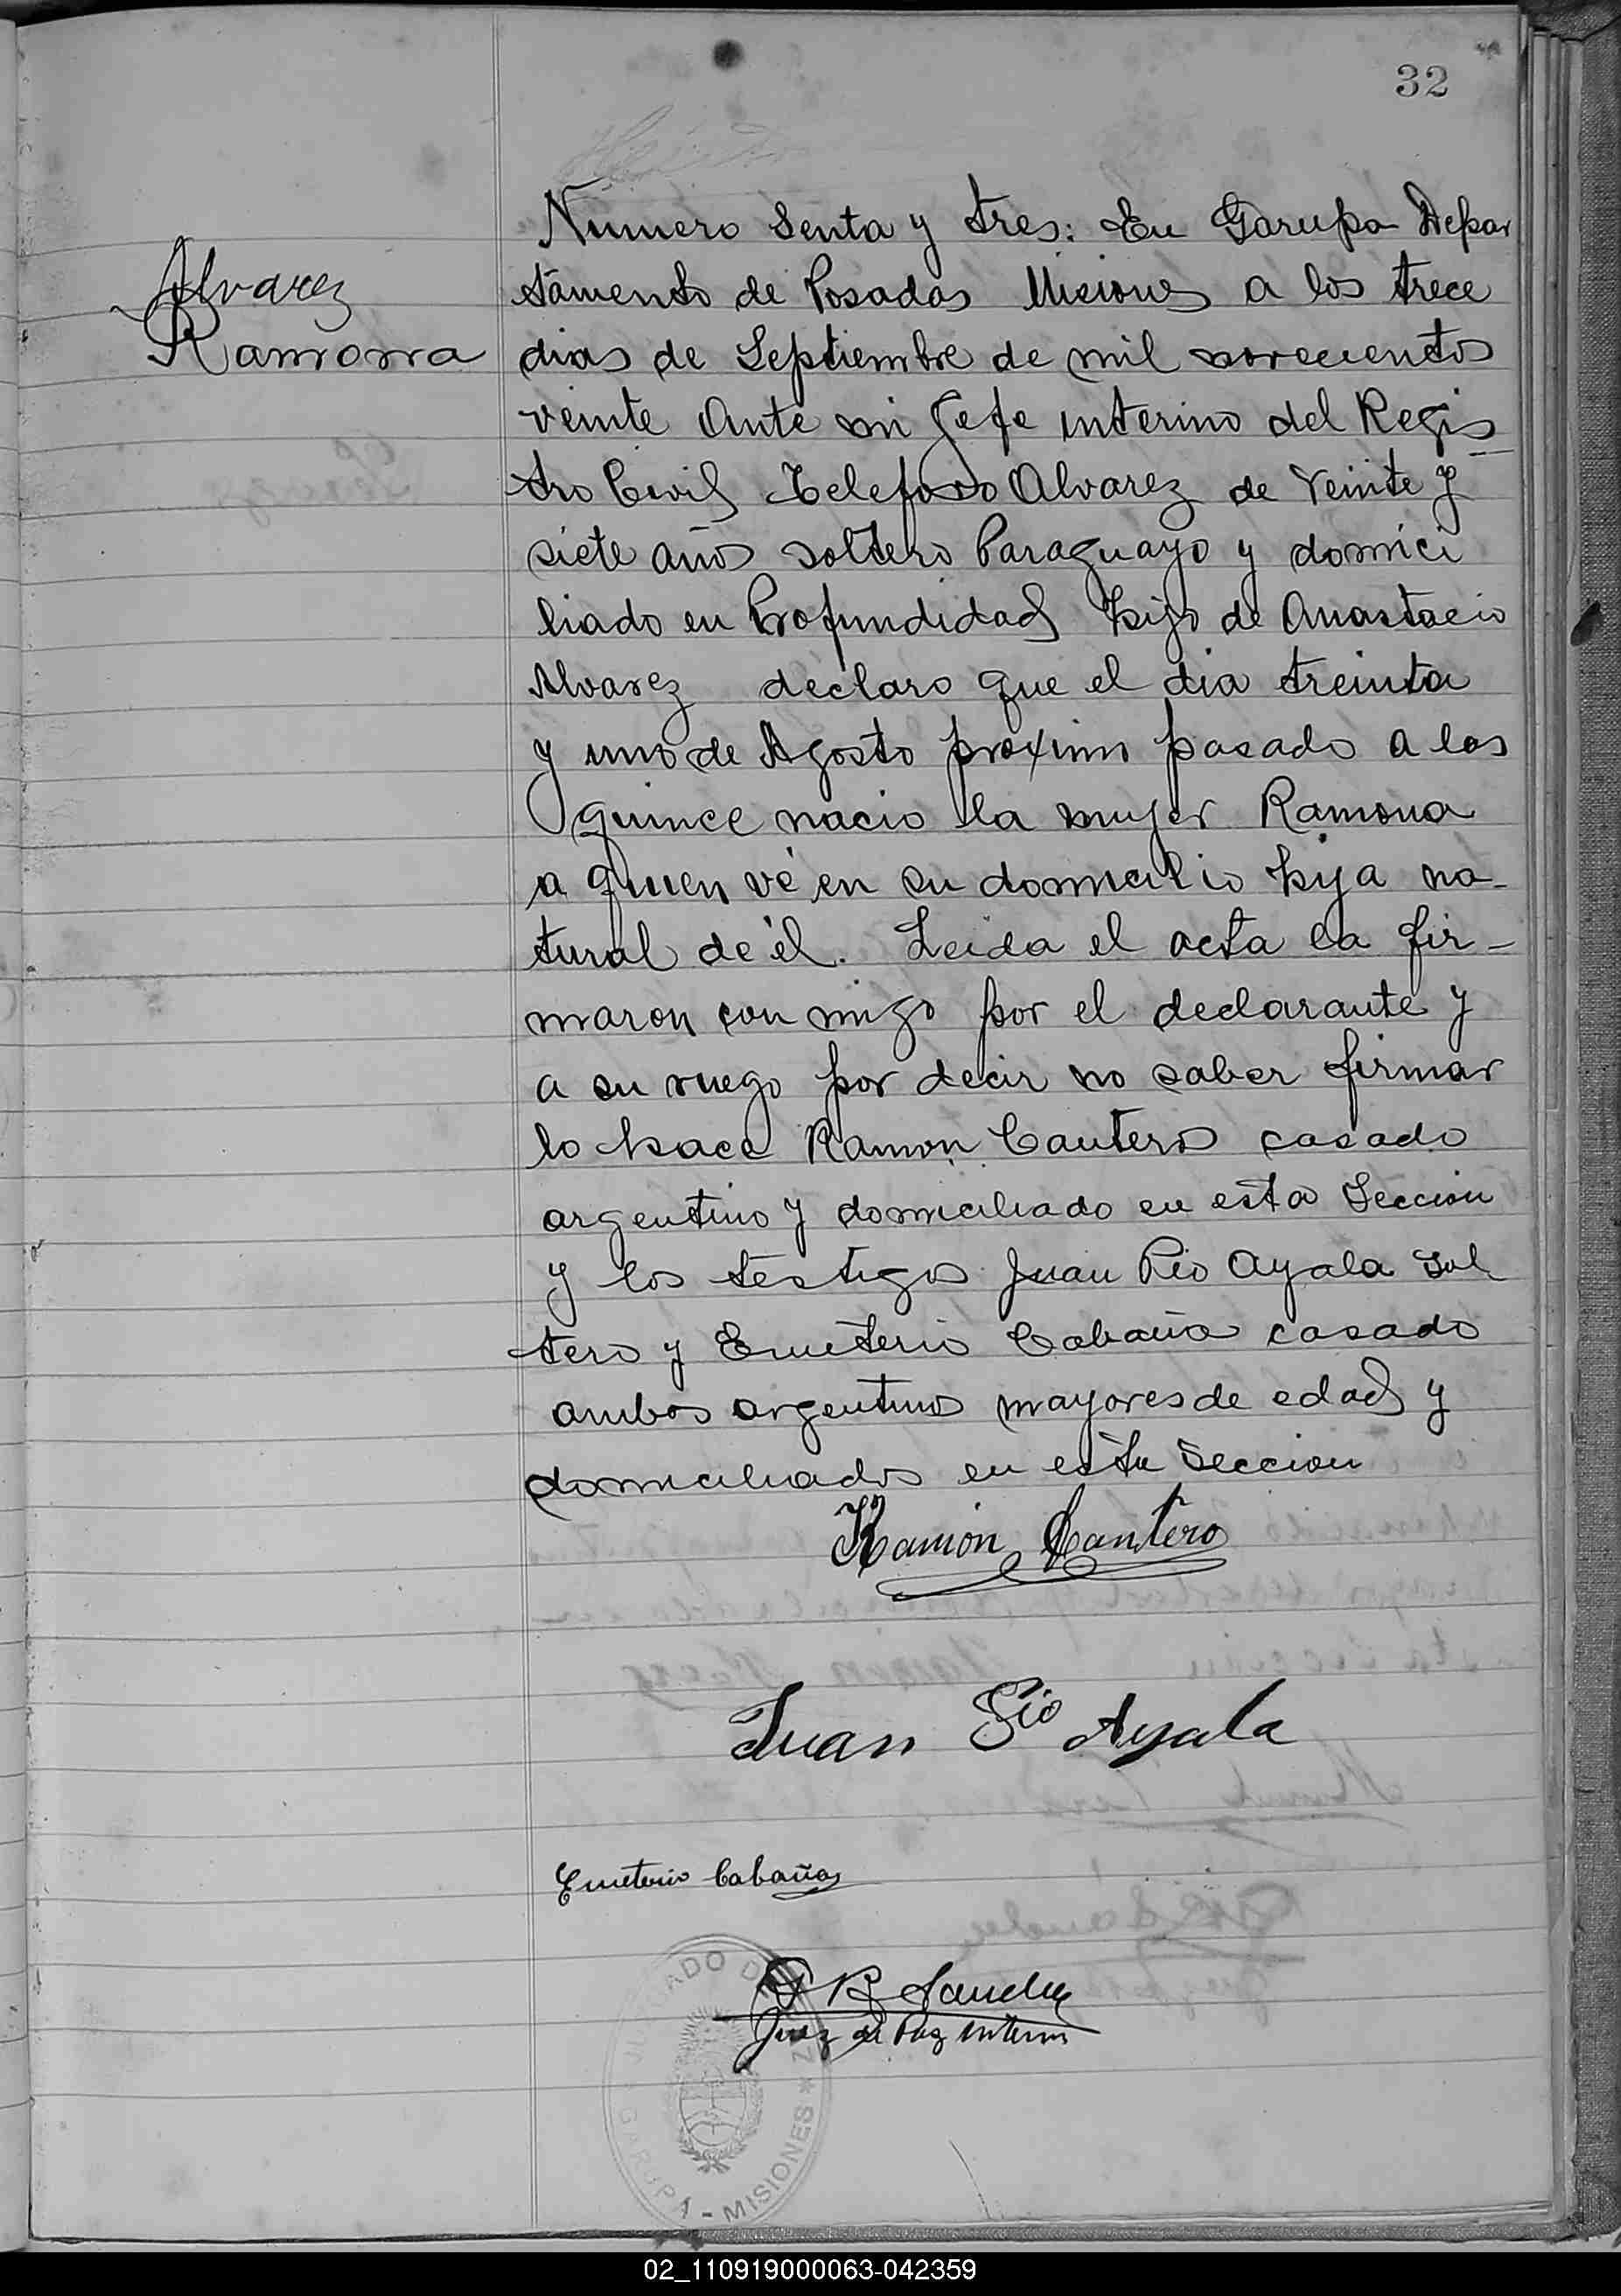 32
Alvarez
Ramona
Número Senta y tres: En Garupa Depar
tamento de Posadas Misiones a los trece
dias de Septiembre de mil novecientos
veinte Ante mi Gefe interino del Regis
tro Civil Telefono Alvarez de veinte y
siete años soltero Paraguayo y domici
liado en Profundidad hijo de Anastacio
Alvarez declaro que el dia treinta
y uno de Agosto proximo pasado a las
quince nacio la mujer Ramona
a quien vé en su domicilio hija na-
tural de él. Leida el acta la fir-
maron con migo por el declarante y
a su ruego por decir no saber firmar
lo hace Ramon Cantero casado
argentino y domiciliado en esta Seccion
y los testigos Juan Pio Ayala sol
tero y Emeterio Cabaña casado
ambos argentinos mayores de edad y
domiciliados en esta Seccion
Ramón Cantero
Juan Pio Ayala
Emeterio Cabañas
R Sanchez
Juez de Paz Interino
JUZGADO DE PAZ * GARUPÁ - MISIONES *
02_110919000063-042359